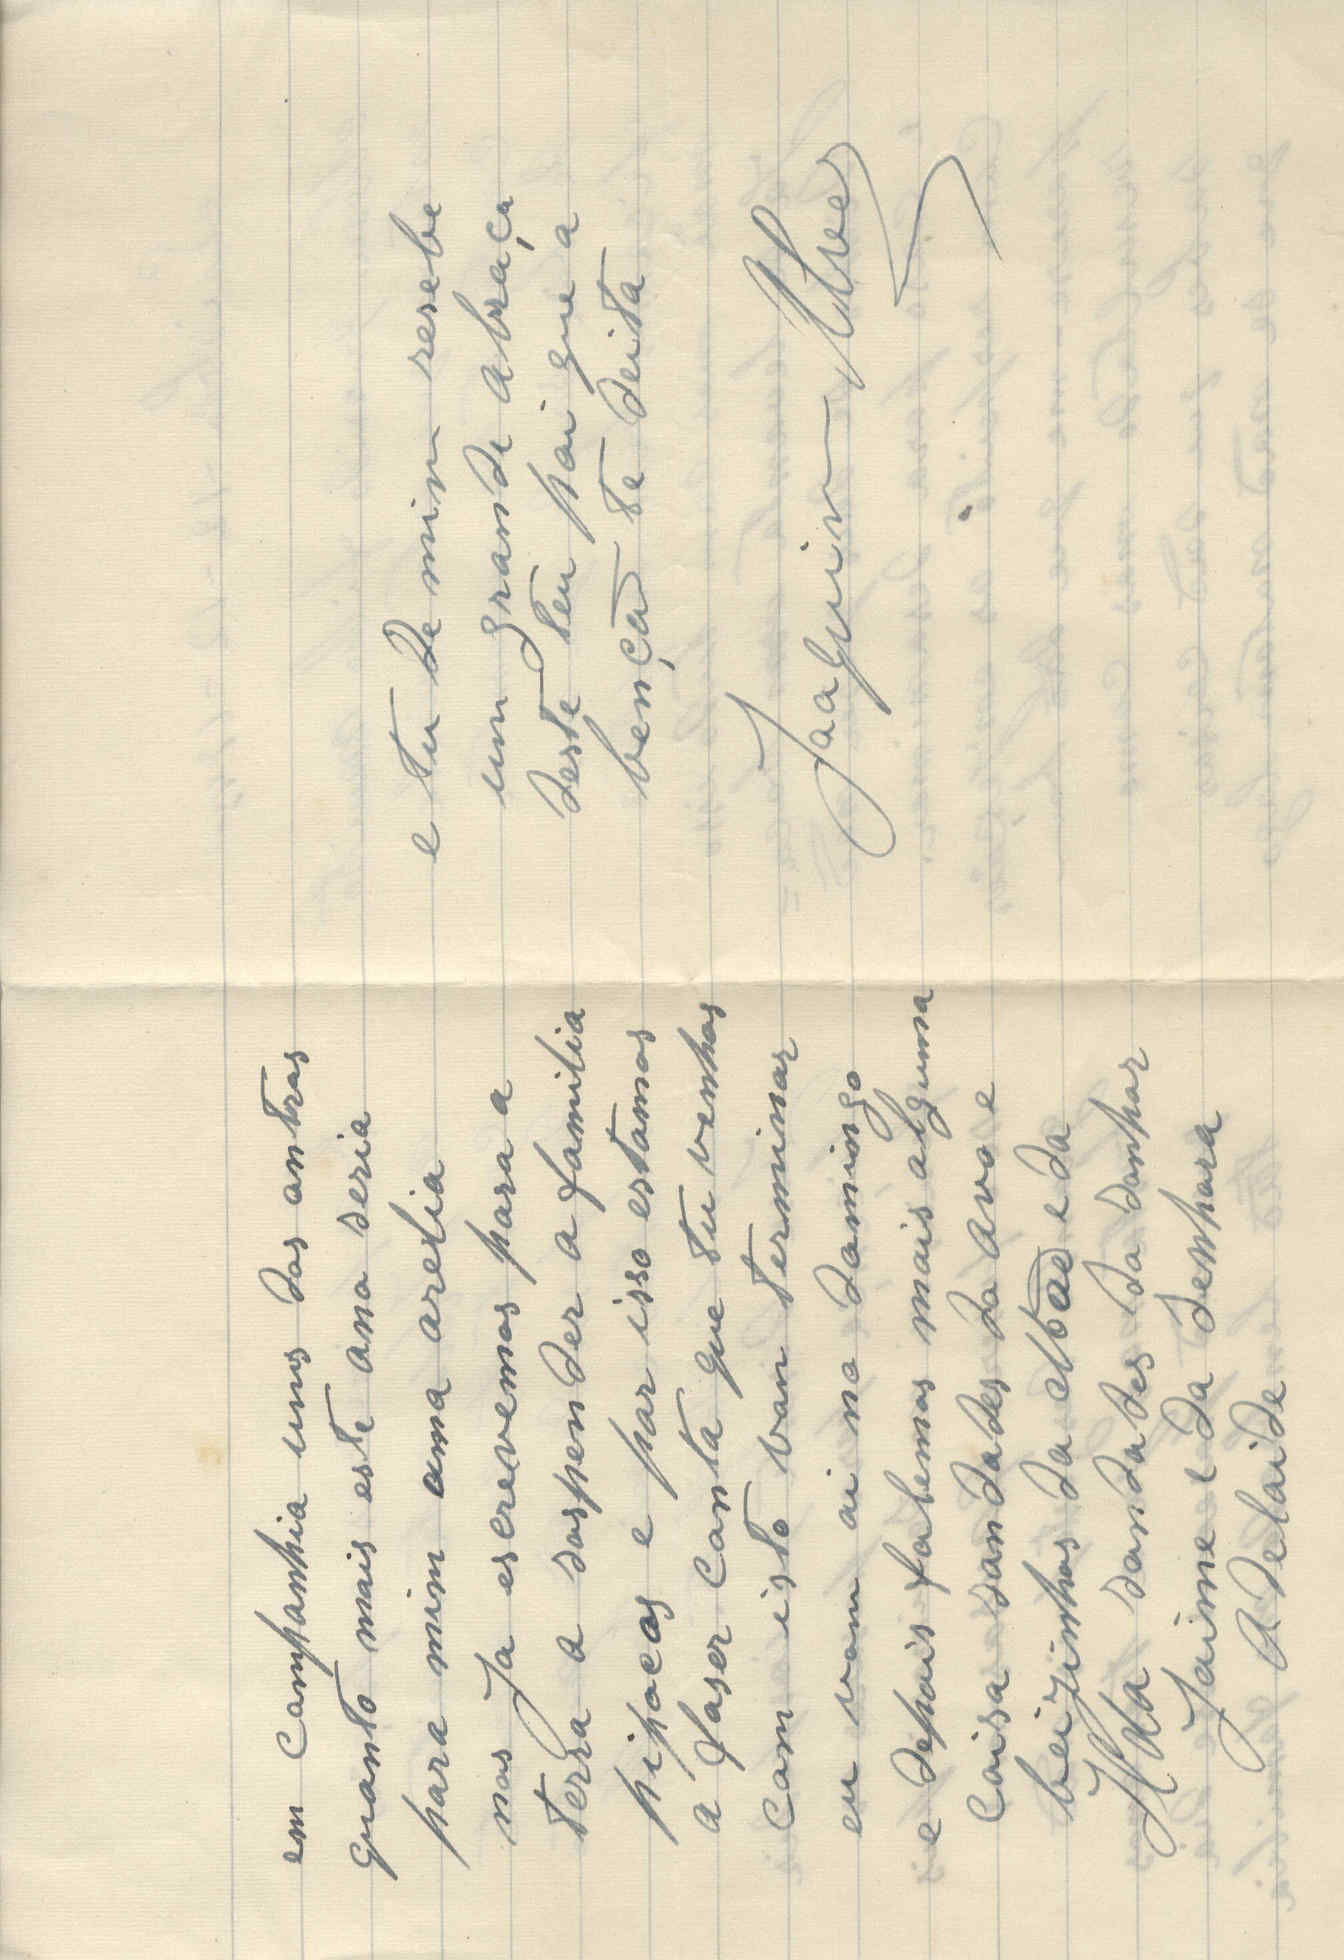 em companhia uns dos outros
quanto mais este ano seria
para mim uma arelia
nos ja escrevemos para a
terra a suspender a familia
pipocas e por isso estamos
a faser conta que tu venhas
com isto vou terminar
eu vou ai no domingo
e depois falemos mais alguma
coisa saudades da avo e
beizinhos da e da
Ilda saudades da senhor
Jaime e da senhora
Adelaide
e tu de mim resebe
um grande abraça
deste teu pai que a
bençã te deita
Joaquim Alves